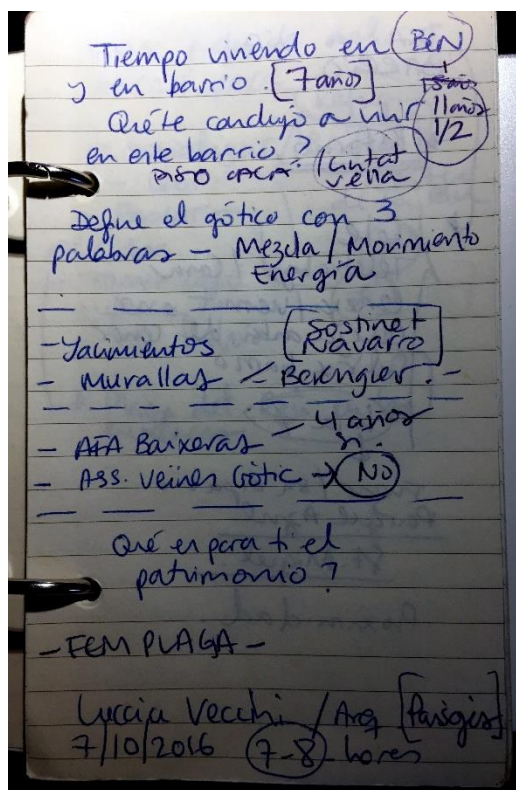 Tiempo viviendo en BCN
y en barrio. [7 años]
11 años
1/2
Qué te condujo a vivir
en este barrio?
PISO CACA. Ciutat
vella
Define el gótico con 3
palabras - Mezcla / Movimiento
Energía
- Yacimientos [Sostinet
Navarro]
- Murallas - Berenguer. -
- AFA Baixeras - 4 años
- Ass. Veïnes Gòtic → No
Qué es para ti el
patrimonio?
- FEM PLAÇA -
Luccia Vecchi / Arq
7/10/2016 7-8 hores